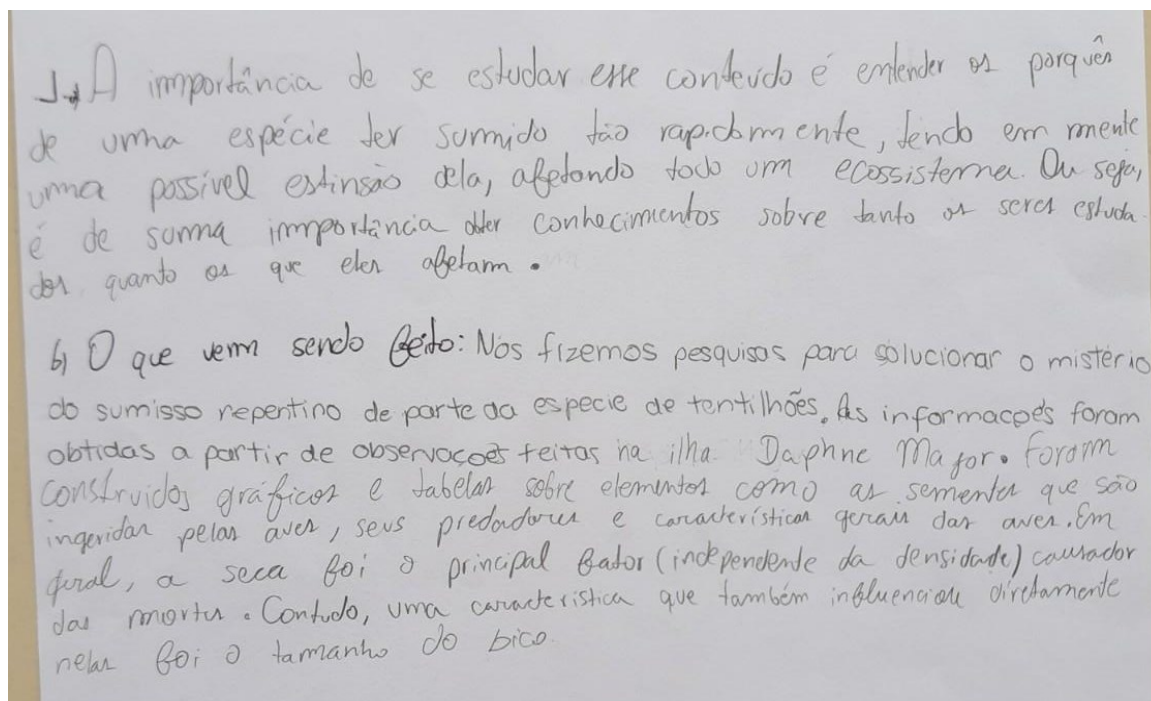 1. A importância de se estudar esse conteúdo é entender os porquês
de uma espécie ter sumido tão rapidamente, tendo em mente
uma possível estinsão dela, afetando todo um ecossistema. Ou seja,
é de suma importância obter conhecimentos sobre tanto os seres estuda-
dos quanto os que eles afetam.
b) O que vem sendo feito: Nós fizemos pesquisas para solucionar o mistério
do sumisso repentino de parte da especie de tentilhões. As informações foram
obtidas a partir de observações feitas na ilha Daphne Major. Foram
construidos gráficos e tabelas sobre elementos como as sementes que são
ingeridas pelas aves, seus predadores e características gerais das aves. Em
geral, a seca foi o principal fator (independente da densidade) causador
das mortes. Contudo, uma característica que também influenciou diretamente
nelas foi o tamanho do bico.